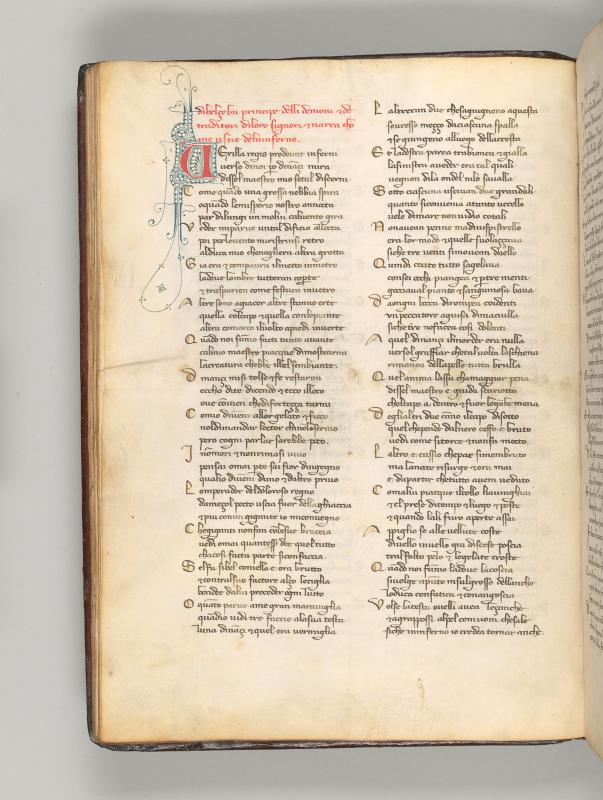 dibelzebu principe delli demoni ⁊ de
traditori diloro signori ⁊ narra cho
me uscie delinferno.
Uexilla regis prodeunt inferni
verso dinoi po dinanzi mira
dissel maestro mio setul discerni
Come quado una grossa nebbia spira
oquado lemisperio nostro annocta
par dilungi un molin chelvento gira
Veder mi parve untal dificio allocta
poi perlovento mi ristrinsi retro
alduca mio che nognliera altra grotta
Gia era ⁊ compaura ilmetto inmetro
ladove lombre tutteran coperte
⁊ trasparien come festuca invetro
Altre sono agiacer altre stanno erte
quella colcapo ⁊ quella conlepiante
altra comarco ilvolto apiedi inverte
Quado noi fumo facti tanto avante
calmio maestro piacque dimostrarmi
lacreatura chebbe ilbel sembiante.
Dinanzi misi tolse ⁊ fe restarmi
eccho dite dicendo ⁊ ecco illoco
ove coven chedi fortezza tarmi
Comio diveni allor gelato ⁊ fioco
noldimandar lector chinolo scrivo
pero cogni parlar sarebbe poco.
I nomori ⁊ nonrimasi vivo
pensa omai per te sai fior dingegno
qualio diveni duno ⁊ daltro privo
Lomperador deldoloroso regno
damezol pecto uscia fuor della ghiaccia
⁊ piu conun gigante io miconvegno
Chegiganti nonfan colesue braccia
vedi omai quantesser dee queltutto
chacosi facta parte si confaccia
Selfu sibel comelle ⁊ ora brutto
⁊ contralsuo factore alzo leciglia
bendee dalui proceder ogni lutto
O quato parve ame gran maraviglia
quadio vidi tre faccie alasua testa
luna dinanzi ⁊ quel era vermiglia
Laltreran due chesagiugneno aquesta
sovresso mezzo daciascuna spalla
⁊ se giungieno alluogo dellacresta
E ladestra parea trabianca ⁊ gialla
lasinistra aveder era tal quali
vegnon dila ondel nilo savalla
Sotto ciascuna uscivan due grandali
quanto siconvenia atanto uccello
vele dimare nonvidio cotali
Nonavean penne madivispistrello
era lor modo ⁊ quelle svolazzava
siche tre venti simovean daello
Quindi cocito tutto sagelava
consei ochi piangea ⁊ per tre menti
gocciaval pianto ⁊ sanguinosa bava
Daongni bocca dirompea codenti
un peccatore aguisa dimaciulla
siche tre nefacea cosi dolenti
A quel dinanzi ilmorder era nulla
versol graffiar chetalvolta laschiena
rimanea dellapelle tutta brulla
Quel anima lassu chamaggior pena
dissel maestro e giuda scariotto
chelcapo a dentro ⁊ fuor legambe mena
Deglialtri due canno ilcapo disotto
quel chepende dalnero ceffo e bruto
vedi come si torce ⁊ nonfa motto.
Laltro e cassio chepar simembruto
ma lanocte risurge ⁊ ora mai
e dapartir chetutto avem veduto
Comalui piacque ilcollo liavinghiai
⁊ el prese ditempo ⁊ luogo ⁊ poste
⁊ quando lali furo aperte assai
Apiglio se alle vellute coste
divello invello giu discese poscia
tralfolto pelo ⁊ legelate croste
Quado noi fumo ladove lacoscia
sivolge apunto insulgrosso dellanche
loduca confatica ⁊ conangoscia
Volse latesta ovelli avea lezanche
⁊ agrappossi alpel comuom chesale
siche ninferno io credea tornar anche.